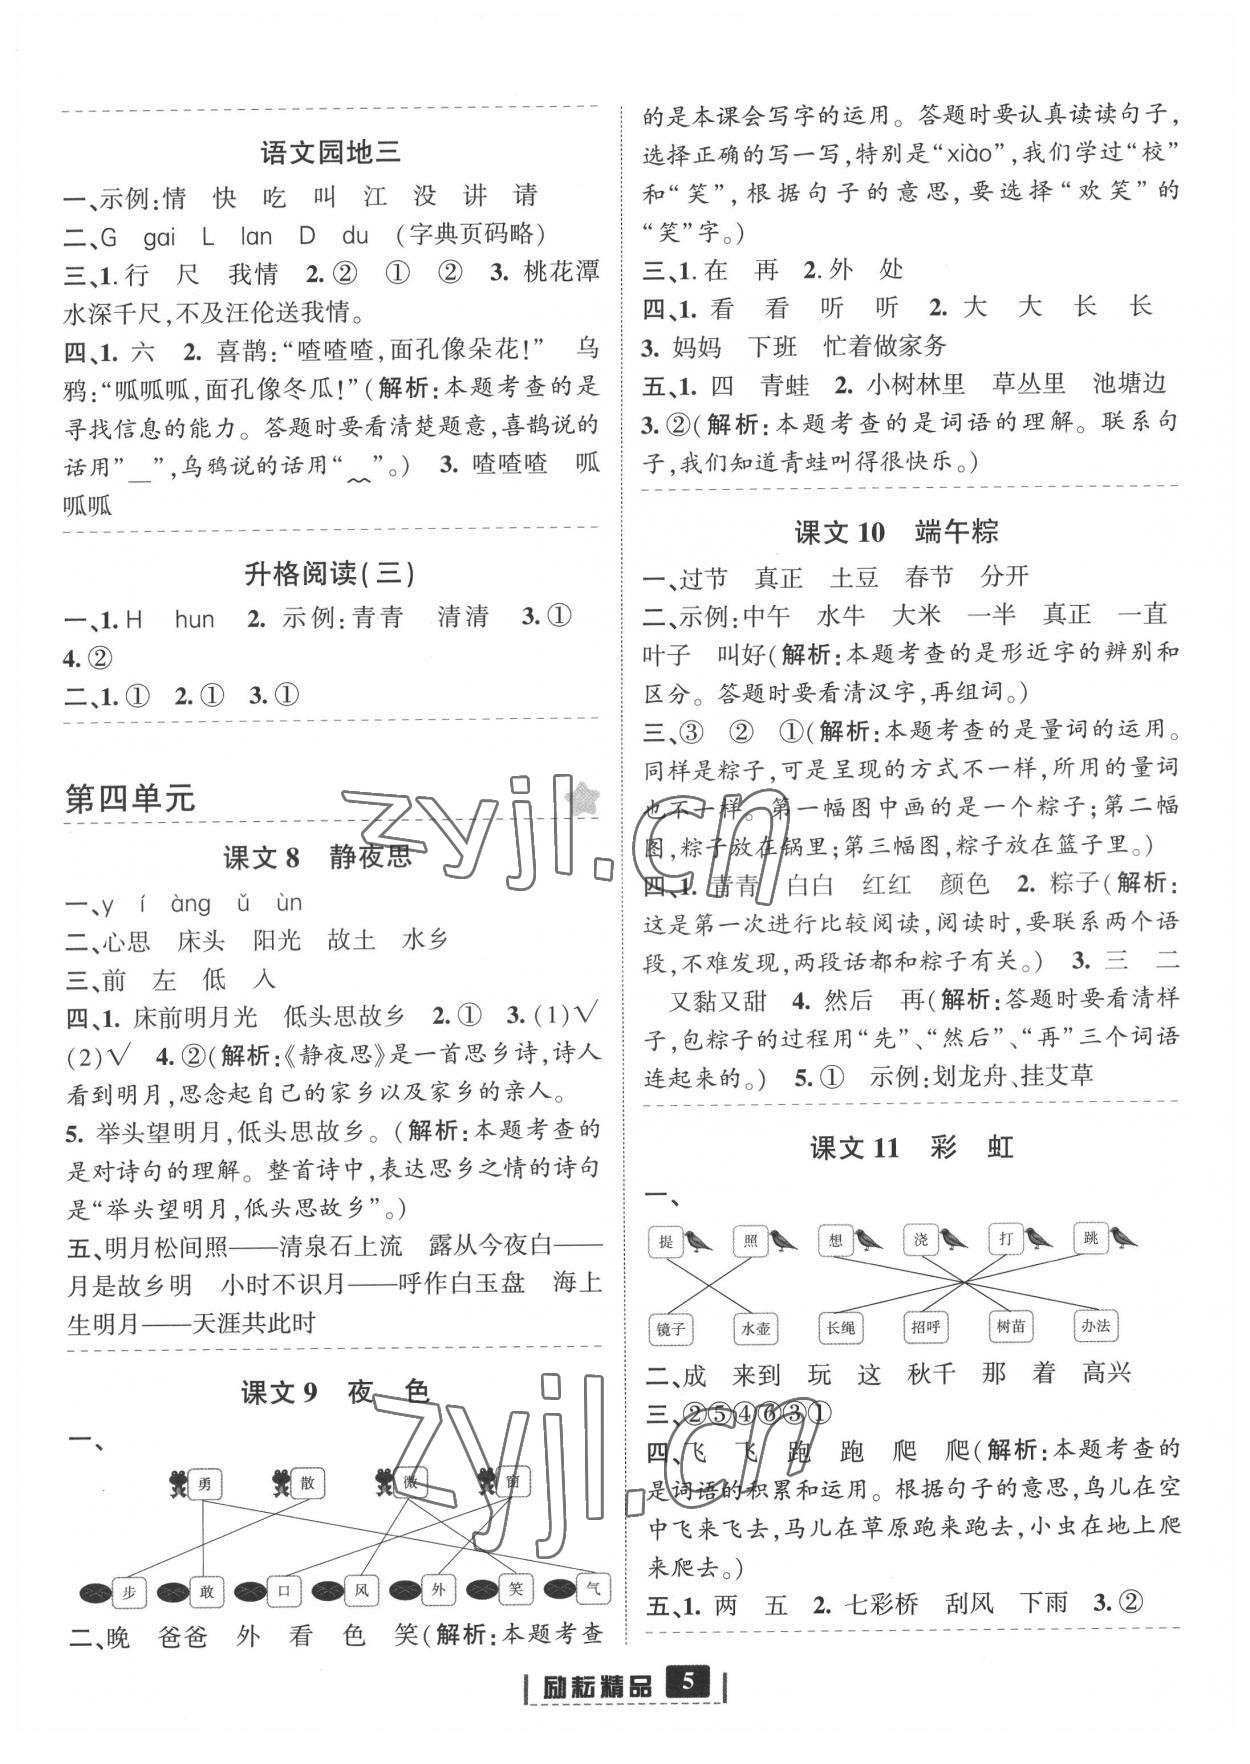 语文园地三
一、示例:情 快 吃 叫 江 没 讲 请
二、G gai L lan D du (字典页码略)
三、1. 行 尺 我情 2. ② ① ② 3. 桃花潭
水深千尺,不及汪伦送我情。
四、1. 六 2. 喜鹊:“喳喳喳,面孔像朵花!” 乌
鸦:“呱呱呱,面孔像冬瓜!”(解析:本题考查的是
寻找信息的能力。答题时要看清楚题意,喜鹊说的
话用”__”,乌鸦说的话用“﹏”。) 3. 喳喳喳 呱
呱呱
升格阅读(三)
一、1. H hun 2. 示例:青青 清清 3. ①
4. ②
二、1. ① 2. ① 3. ①
第四单元
课文 8 静夜思
一、y í àng ǔ ùn
二、心思 床头 阳光 故土 水乡
三、前 左 低 入
四、1. 床前明月光 低头思故乡 2. ① 3. (1)√
(2)√ 4. ②(解析:《静夜思》是一首思乡诗,诗人
看到明月,思念起自己的家乡以及家乡的亲人。
5. 举头望明月,低头思故乡。(解析:本题考查的
是对诗句的理解。整首诗中,表达思乡之情的诗句
是“举头望明月,低头思故乡”。)
五、明月松间照——清泉石上流 露从今夜白——
月是故乡明 小时不识月——呼作白玉盘 海上
生明月——天涯共此时
课文 9 夜 色
一、
勇 散 微 窗
步 敢 口 风 外 笑 气
二、晚 爸爸 外 看 色 笑(解析:本题考查
的是本课会写字的运用。答题时要认真读读句子,
选择正确的写一写,特别是“xiào”,我们学过“校”
和“笑”,根据句子的意思,要选择“欢笑”的
“笑”字。)
三、1. 在 再 2. 外 处
四、1. 看 看 听 听 2. 大 大 长 长
3. 妈妈 下班 忙着做家务
五、1. 四 青蛙 2. 小树林里 草丛里 池塘边
3. ②(解析:本题考查的是词语的理解。联系句
子,我们知道青蛙叫得很快乐。)
课文 10 端午粽
一、过节 真正 土豆 春节 分开
二、示例:中午 水牛 大米 一半 真正 一直
叶子 叫好(解析:本题考查的是形近字的辨别和
区分。答题时要看清汉字,再组词。)
三、③ ② ①(解析:本题考查的是量词的运用。
同样是粽子,可是呈现的方式不一样,所用的量词
也不一样。第一幅图中画的是一个粽子;第二幅
图,粽子放在锅里;第三幅图,粽子放在篮子里。)
四、1. 青青 白白 红红 颜色 2. 粽子(解析:
这是第一次进行比较阅读,阅读时,要联系两个语
段,不难发现,两段话都和粽子有关。) 3. 三 二
又黏又甜 4. 然后 再(解析:答题时要看清样
子,包粽子的过程用“先”、“然后”、“再”三个词语
连起来的。) 5. ① 示例:划龙舟、挂艾草
课文 11 彩 虹
一、
提 照 想 浇 打 跳
镜子 水壶 长绳 招呼 树苗 办法
二、成 来到 玩 这 秋千 那 着 高兴
三、②⑤④⑥③①
四、飞 飞 跑 跑 爬 爬(解析:本题考查的
是词语的积累和运用。根据句子的意思,鸟儿在空
中飞来飞去,马儿在草原跑来跑去,小虫在地上爬
来爬去。)
五、1. 两 五 2. 七彩桥 刮风 下雨 3. ②
zyjl.cn
zyjl.cn
励耘精品 5